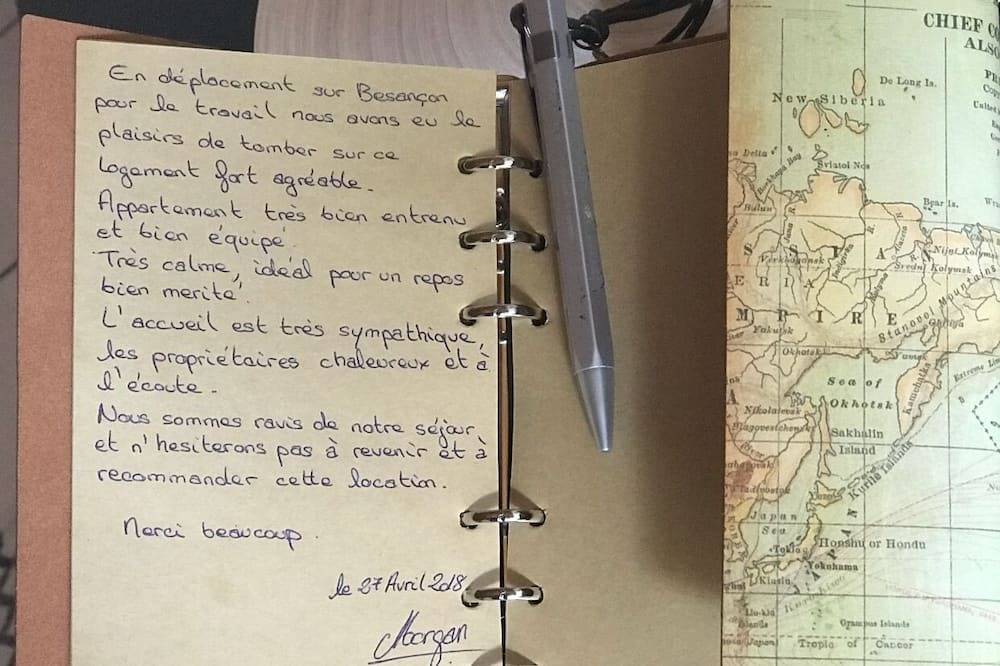 En déplacement sur Besançon
pour le travail nous avons eu le
plaisirs de tomber sur ce
logement fort agréable.
Appartement très bien entrenu
et bien équipé.
Très calme, idéal pour un repos
bien merité.
L'accueil est très sympathique,
les propriétaires chaleureux et à
l'écoute.
Nous sommes ravis de notre séjour
et n'hesiterons pas à revenir et à
recommander cette location.
Merci beaucoup.
le 27 Avril 2018
Morgan
CHIEF
ALS
De Long Is.
New Siberia
Sviatoi Nos
Bear Is.
Verkhoyansk
Nijni Kolymsk
Sredni Kolymsk
ERIA
MPIRE
Stanovoi Mountains
Yakutsk
Okhotsk
Sea of
Okhotsk
Kamchatka
Nikolaievsk
Blagovestchensk
Sakhalin
Island
Kurile Islands
Japan
Sea
JAPAN
Tokio
Honshu or Hondu
Yokohama
Kiusiu
Kuroshiwo
Liu-kiu
Islands
Grampus Islands
Tropic of Cancer